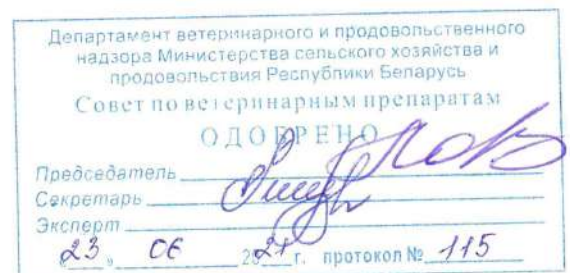 Департамент ветеринарного и продовольственного
надзора Министерства сельского хозяйства и
продовольствия Республики Беларусь
Совет по ветеринарным препаратам
ОДОБРЕНО
Председатель
Секретарь
Эксперт
"23" 06 2021 г. протокол № 115